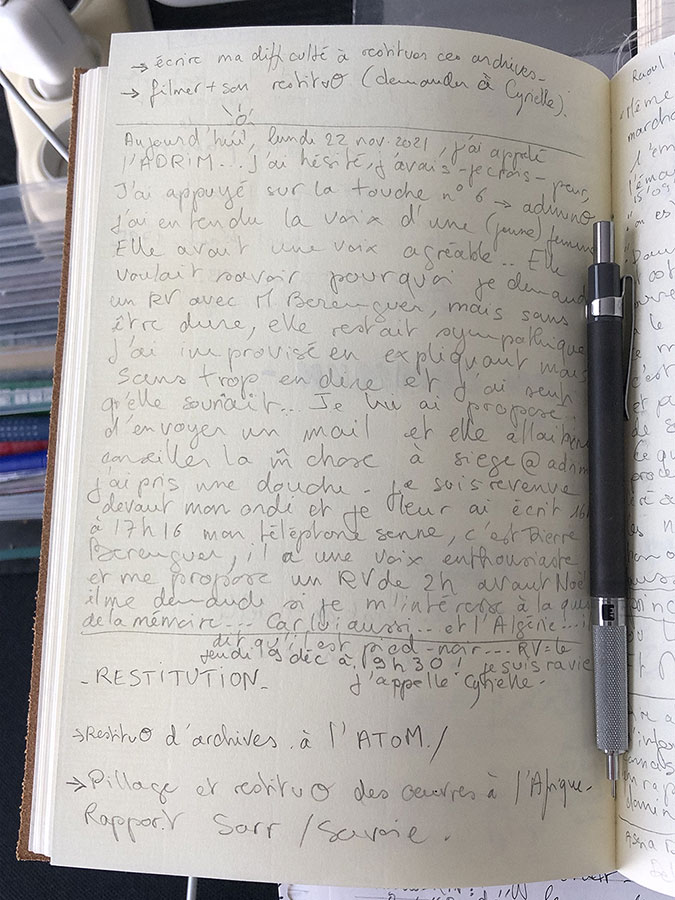 → écrire ma difficulté à restituer ces archives_
→ filmer + son restituo (demander à Cyrielle).
Aujourd'hui, lundi 22 nov. 2021, j'ai appelé
l'ADRIM... j'ai hésité, j'avais - je crois - peur,
J'ai appuyé sur la touche n° 6 → admino
j'ai entendu la voix d'une (jeune) femme
Elle avait une voix agréable.. Elle
voulait savoir pourquoi je demand
un RV avec M Berenguer, mais sans
être dure, elle restait sympathique
J'ai improvisé en expliquant mais
sans trop en dire et j'ai senti
qu'elle souriait.. Je lui ai proposé
d'envoyer un mail et elle allait
conseiller la m̂ chose à siege@adrim
j'ai pris une douche - je suis revenue
devant mon ordi et je leur ai écrit 16h
à 17h16 mon téléphone sonne, c'est Pierre
Berenguer, il a une voix enthousiaste
et me propose un RV de 2h avant Noël
il me demande si je m'intéresse à la
de la mémoire... Car lui aussi... et l'Algérie...
dit qu'il est pied-noir... RV = le
jeudi 9 déc à 9h30! je suis ravie
j'appelle Cyrielle -
- RESTITUTION_
→ Restituo d'archives à l'ATOM /
→ Pillage et restituo des œuvres à l'Afrique-
Rapport Sarr / Savoie.
Raoul
Même
marcha